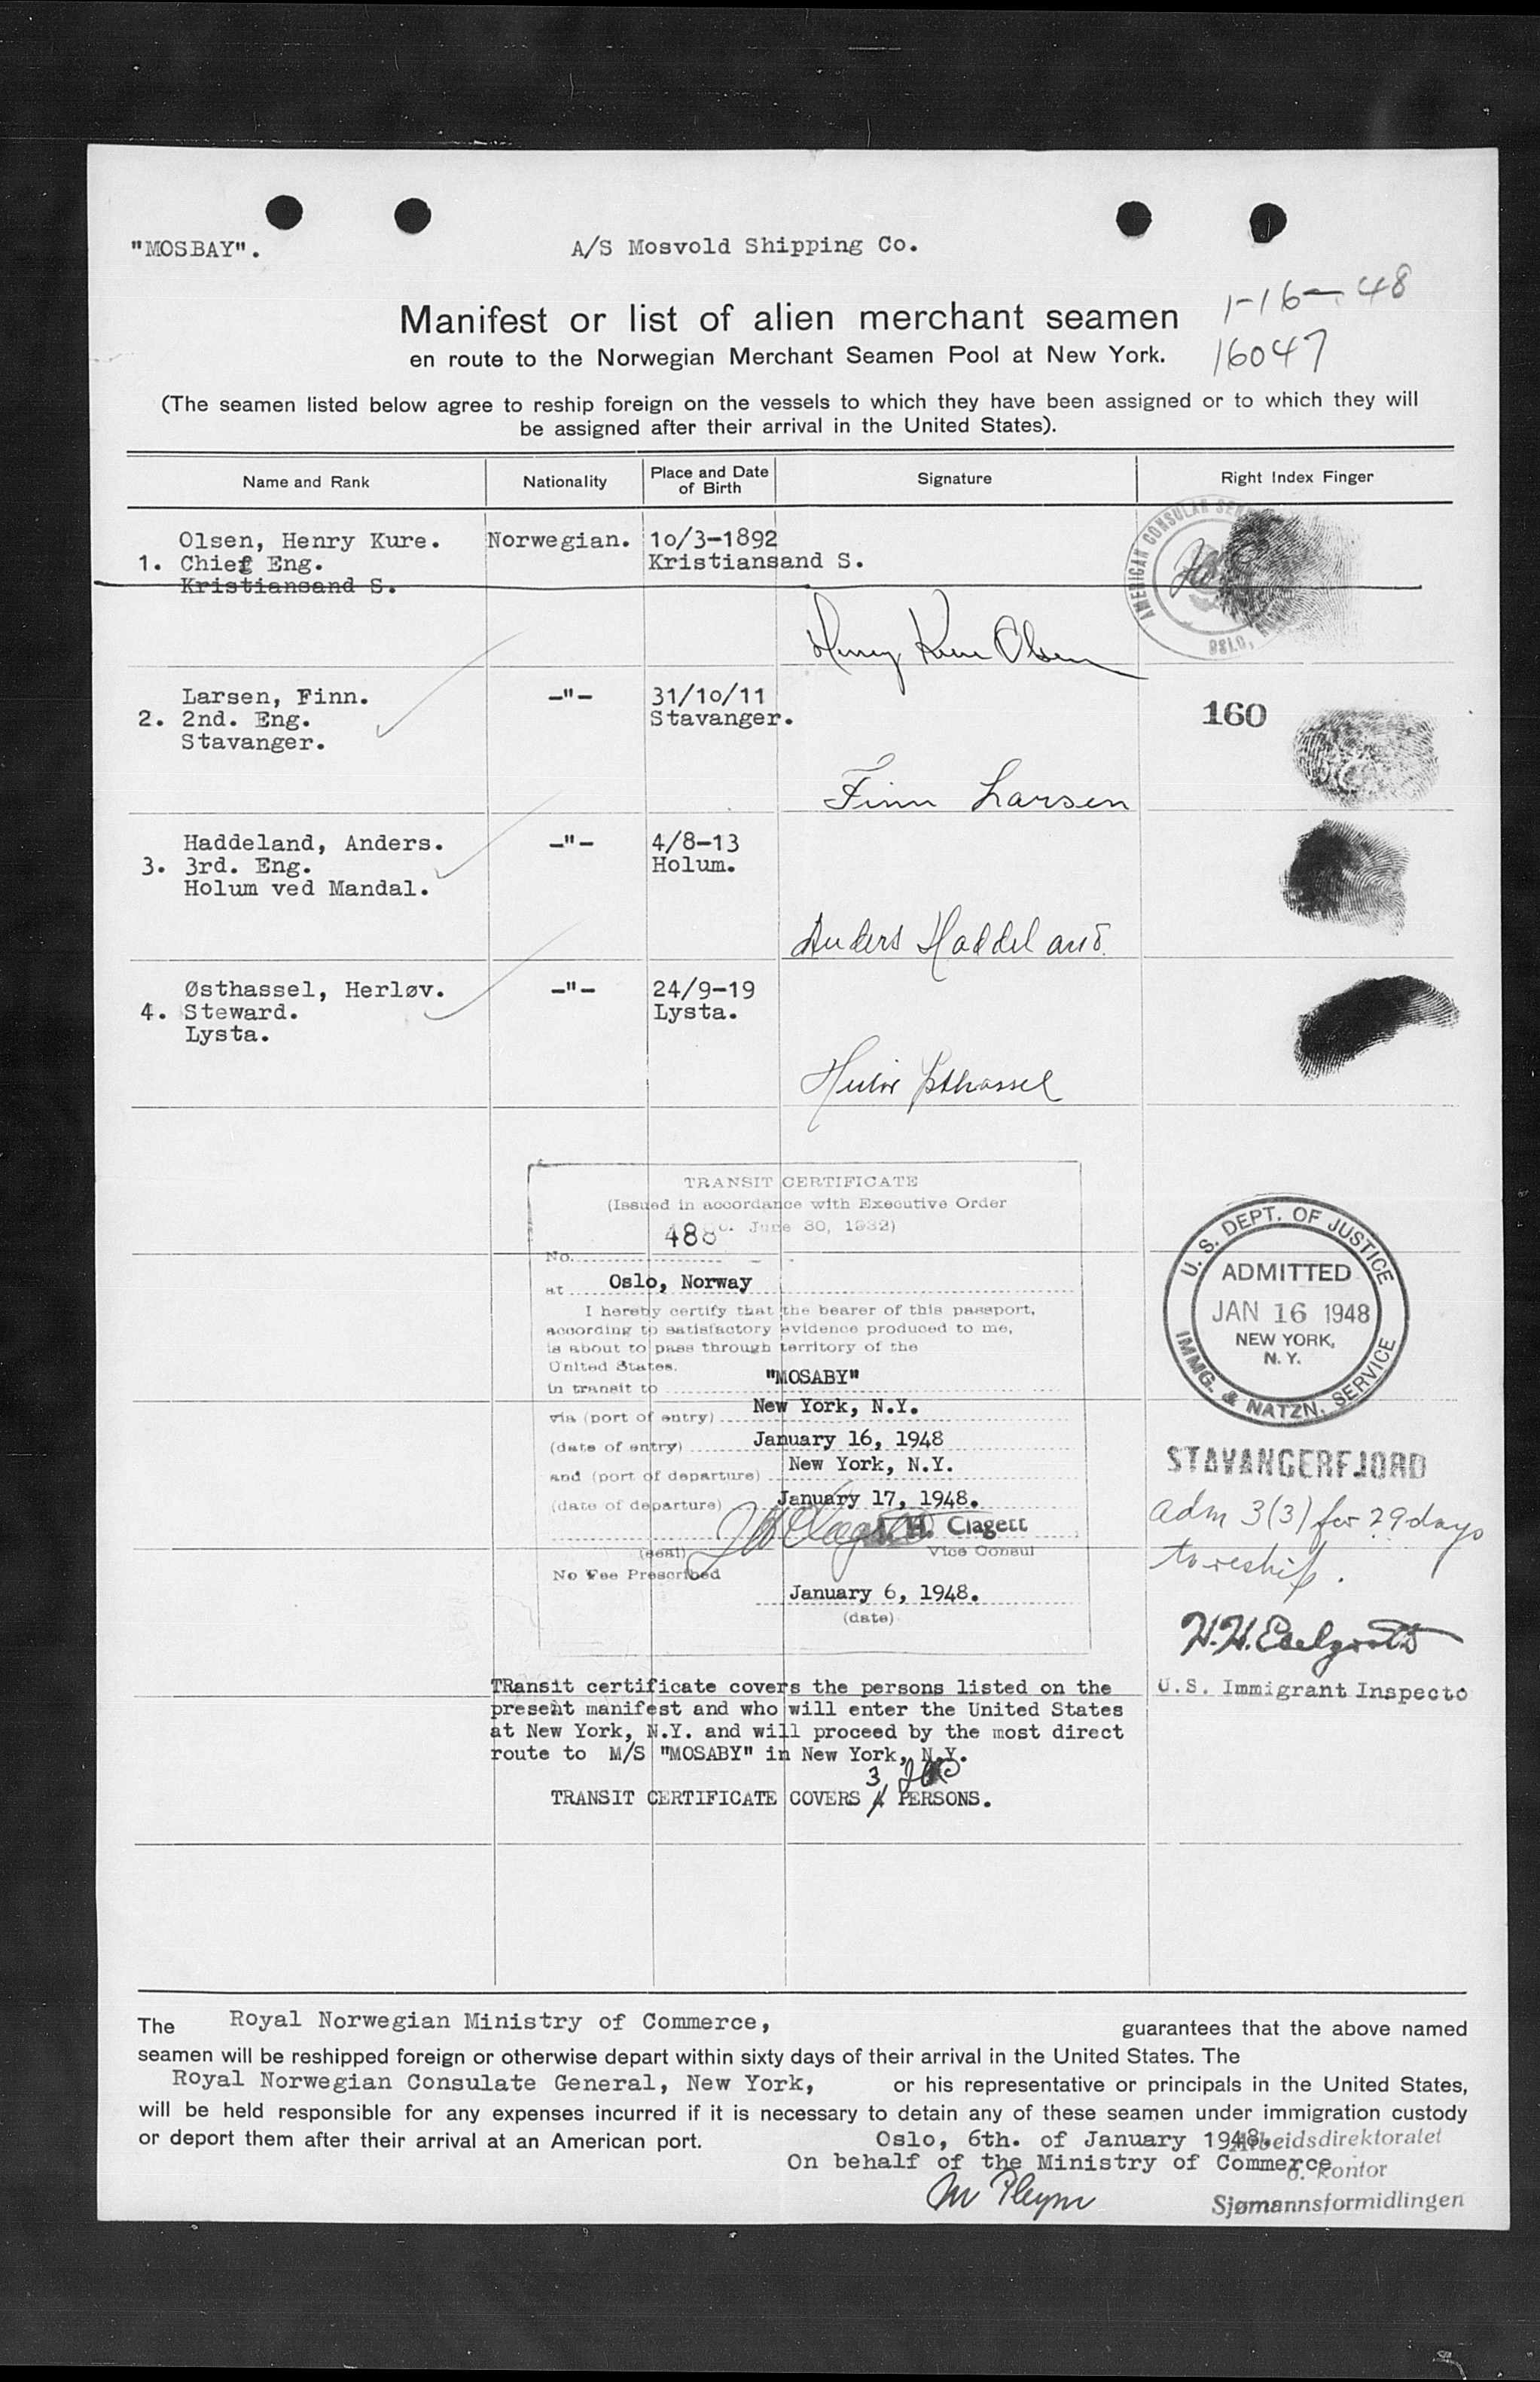 "MOSBAY".
A/S Mosvold Shipping Co.
Manifest or list of alien merchant seamen
1-16-48
en route to the Norwegian Merchant Seamen Pool at New York.
16047
(The seamen listed below agree to reship foreign on the vessels to which they have been assigned or to which they will
be assigned after their arrival in the United States).
Name and Rank Nationality Place and Date of Birth Signature Right Index Finger
Olsen, Henry Kure. Norwegian. 10/3-1892
1. Chief Eng. Kristiansand S.
Kristiansand S.
AMERICAN CONSULAR
OSLO,
Henry Kure Olsen
Larsen, Finn. -"- 31/10/11
2. 2nd. Eng. Stavanger. 160
Stavanger.
Finn Larsen
Haddeland, Anders. -"- 4/8-13
3. 3rd. Eng. Holum.
Holum ved Mandal.
Anders Haddeland
Østhassel, Herløv. -"- 24/9-19
4. Steward. Lysta.
Lysta.
Østhassel
TRANSIT CERTIFICATE
(Issued in accordance with Executive Order
June 30, 1932)
No. 488
at Oslo, Norway
I hereby certify that the bearer of this passport,
according to satisfactory evidence produced to me,
is about to pass through territory of the
United States.
in transit to "MOSABY"
via (port of entry) New York, N.Y.
(date of entry) January 16, 1948
and (port of departure) New York, N.Y.
(date of departure) January 17, 1948.
H. Clagett
(seal) Vice Consul
No Fee Prescribed
January 6, 1948.
(date)
U. S. DEPT. OF JUSTICE
ADMITTED
JAN 16 1948
NEW YORK,
N. Y.
IMMG. & NATZN. SERVICE
STAVANGERFJORD
adm 3(3) for 29 days
to reship.
U.S. Immigrant Inspecto
TRansit certificate covers the persons listed on the
present manifest and who will enter the United States
at New York, N.Y. and will proceed by the most direct
route to M/S "MOSABY" in New York, N.Y.
3
TRANSIT CERTIFICATE COVERS 4 PERSONS.
The Royal Norwegian Ministry of Commerce, guarantees that the above named
seamen will be reshipped foreign or otherwise depart within sixty days of their arrival in the United States. The
Royal Norwegian Consulate General, New York, or his representative or principals in the United States,
will be held responsible for any expenses incurred if it is necessary to detain any of these seamen under immigration custody
or deport them after their arrival at an American port. Oslo, 6th. of January 1948.
Arbeidsdirektoratet
On behalf of the Ministry of Commerce
6. kontor
M Pleym
Sjømannsformidlingen